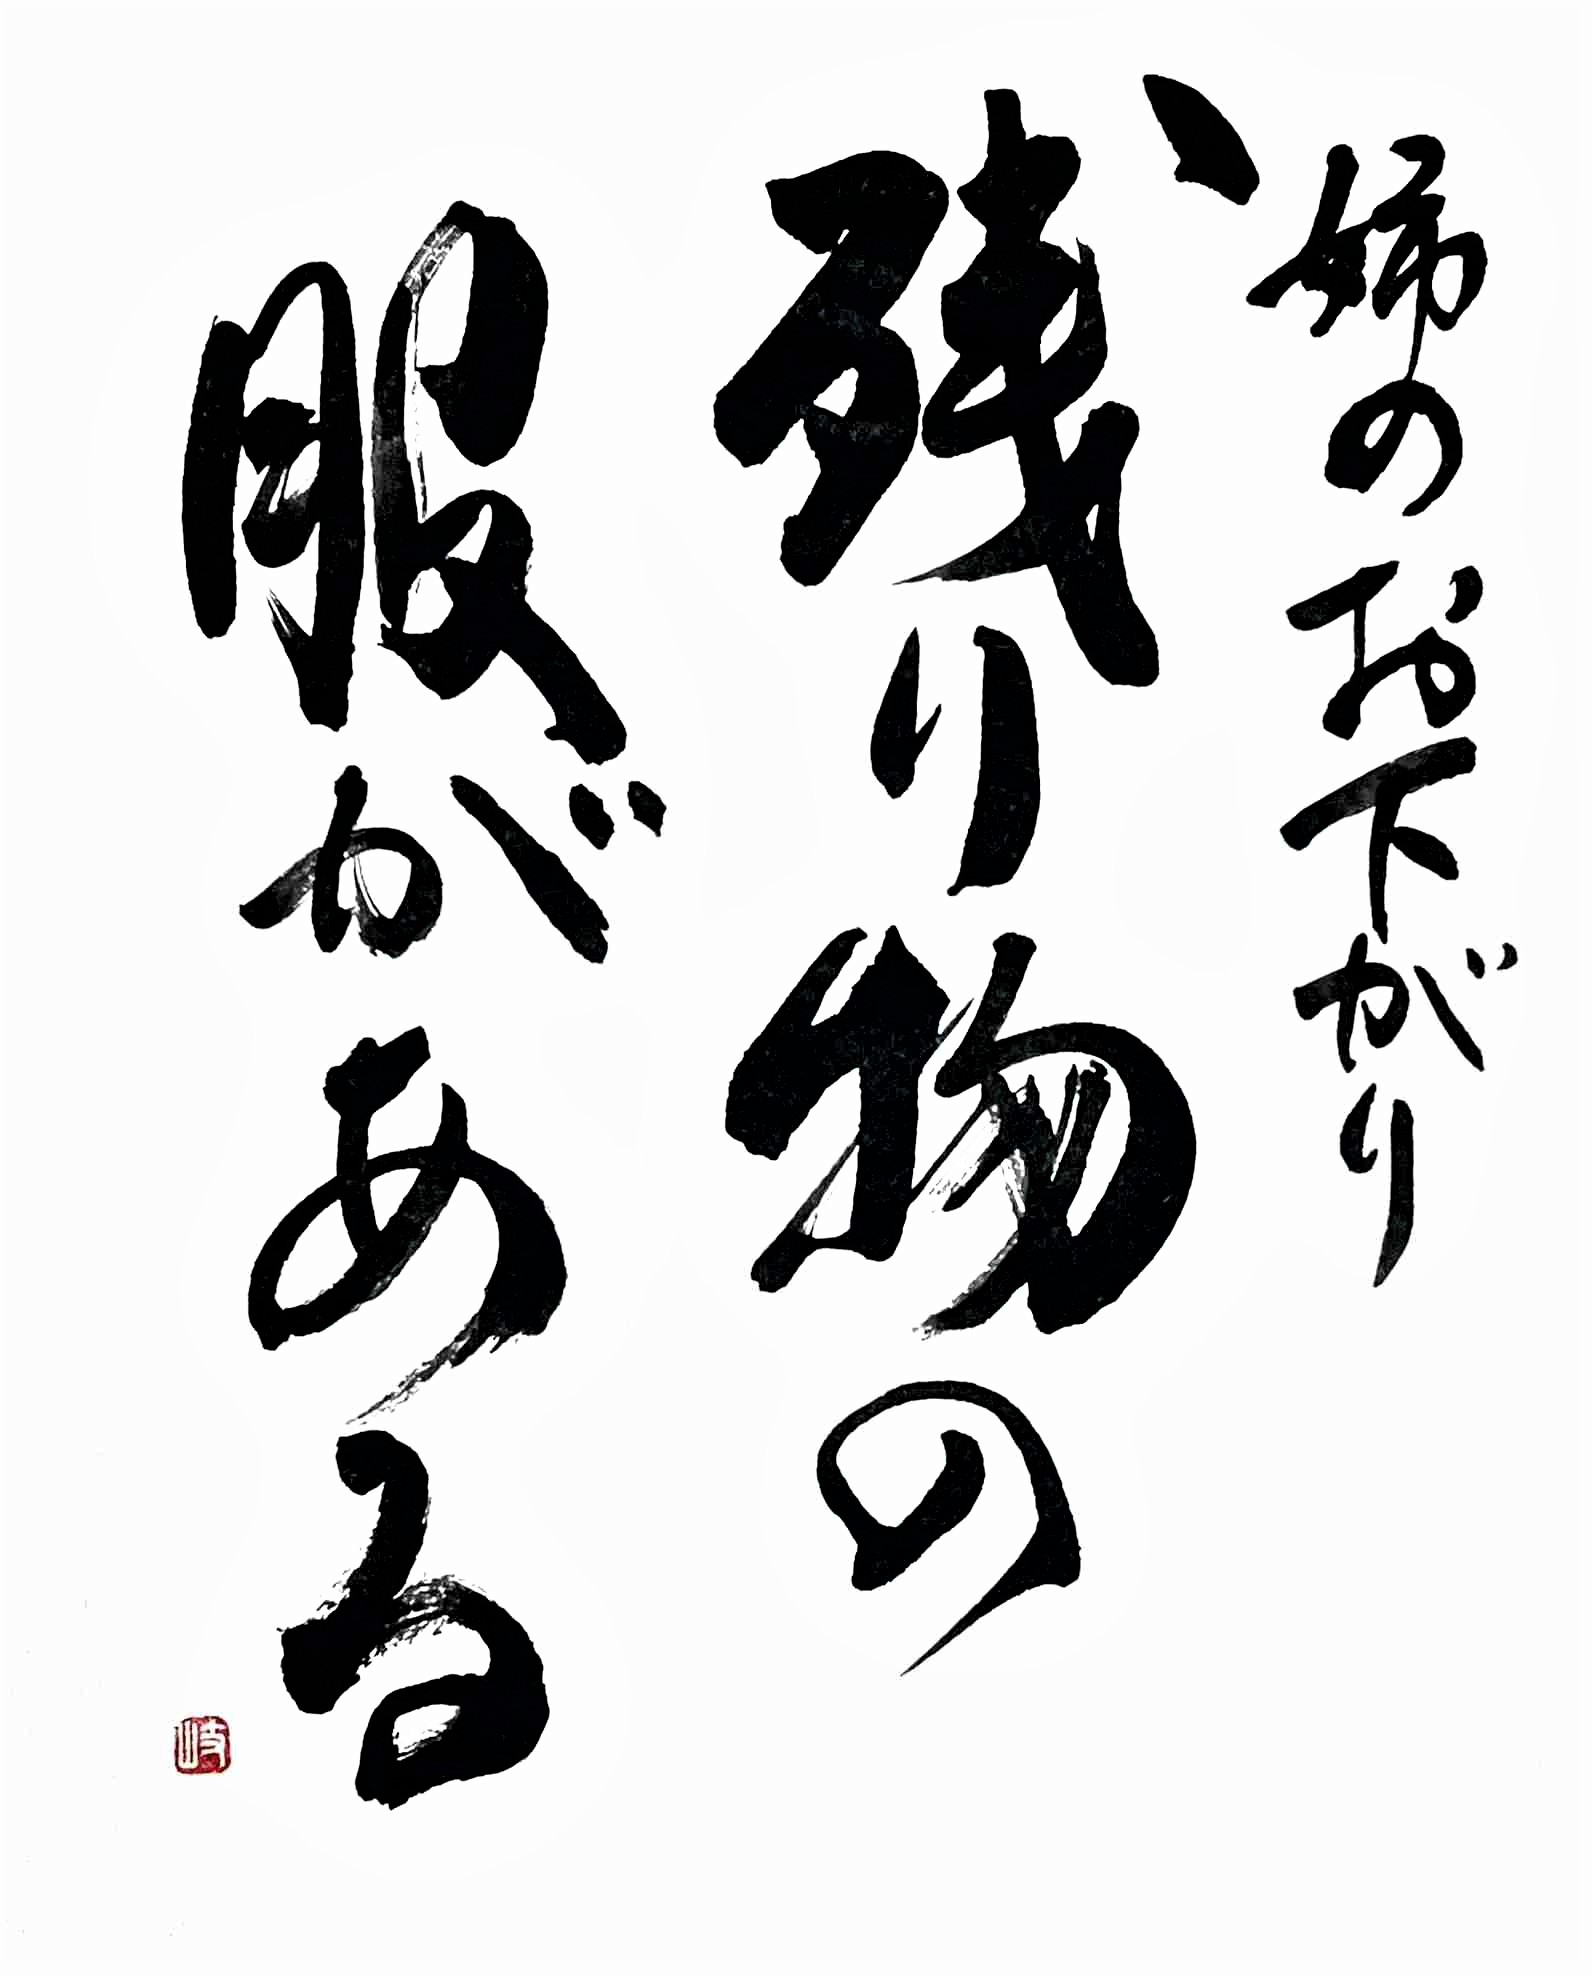 姉のお下がり
残り物の
服がある
岐